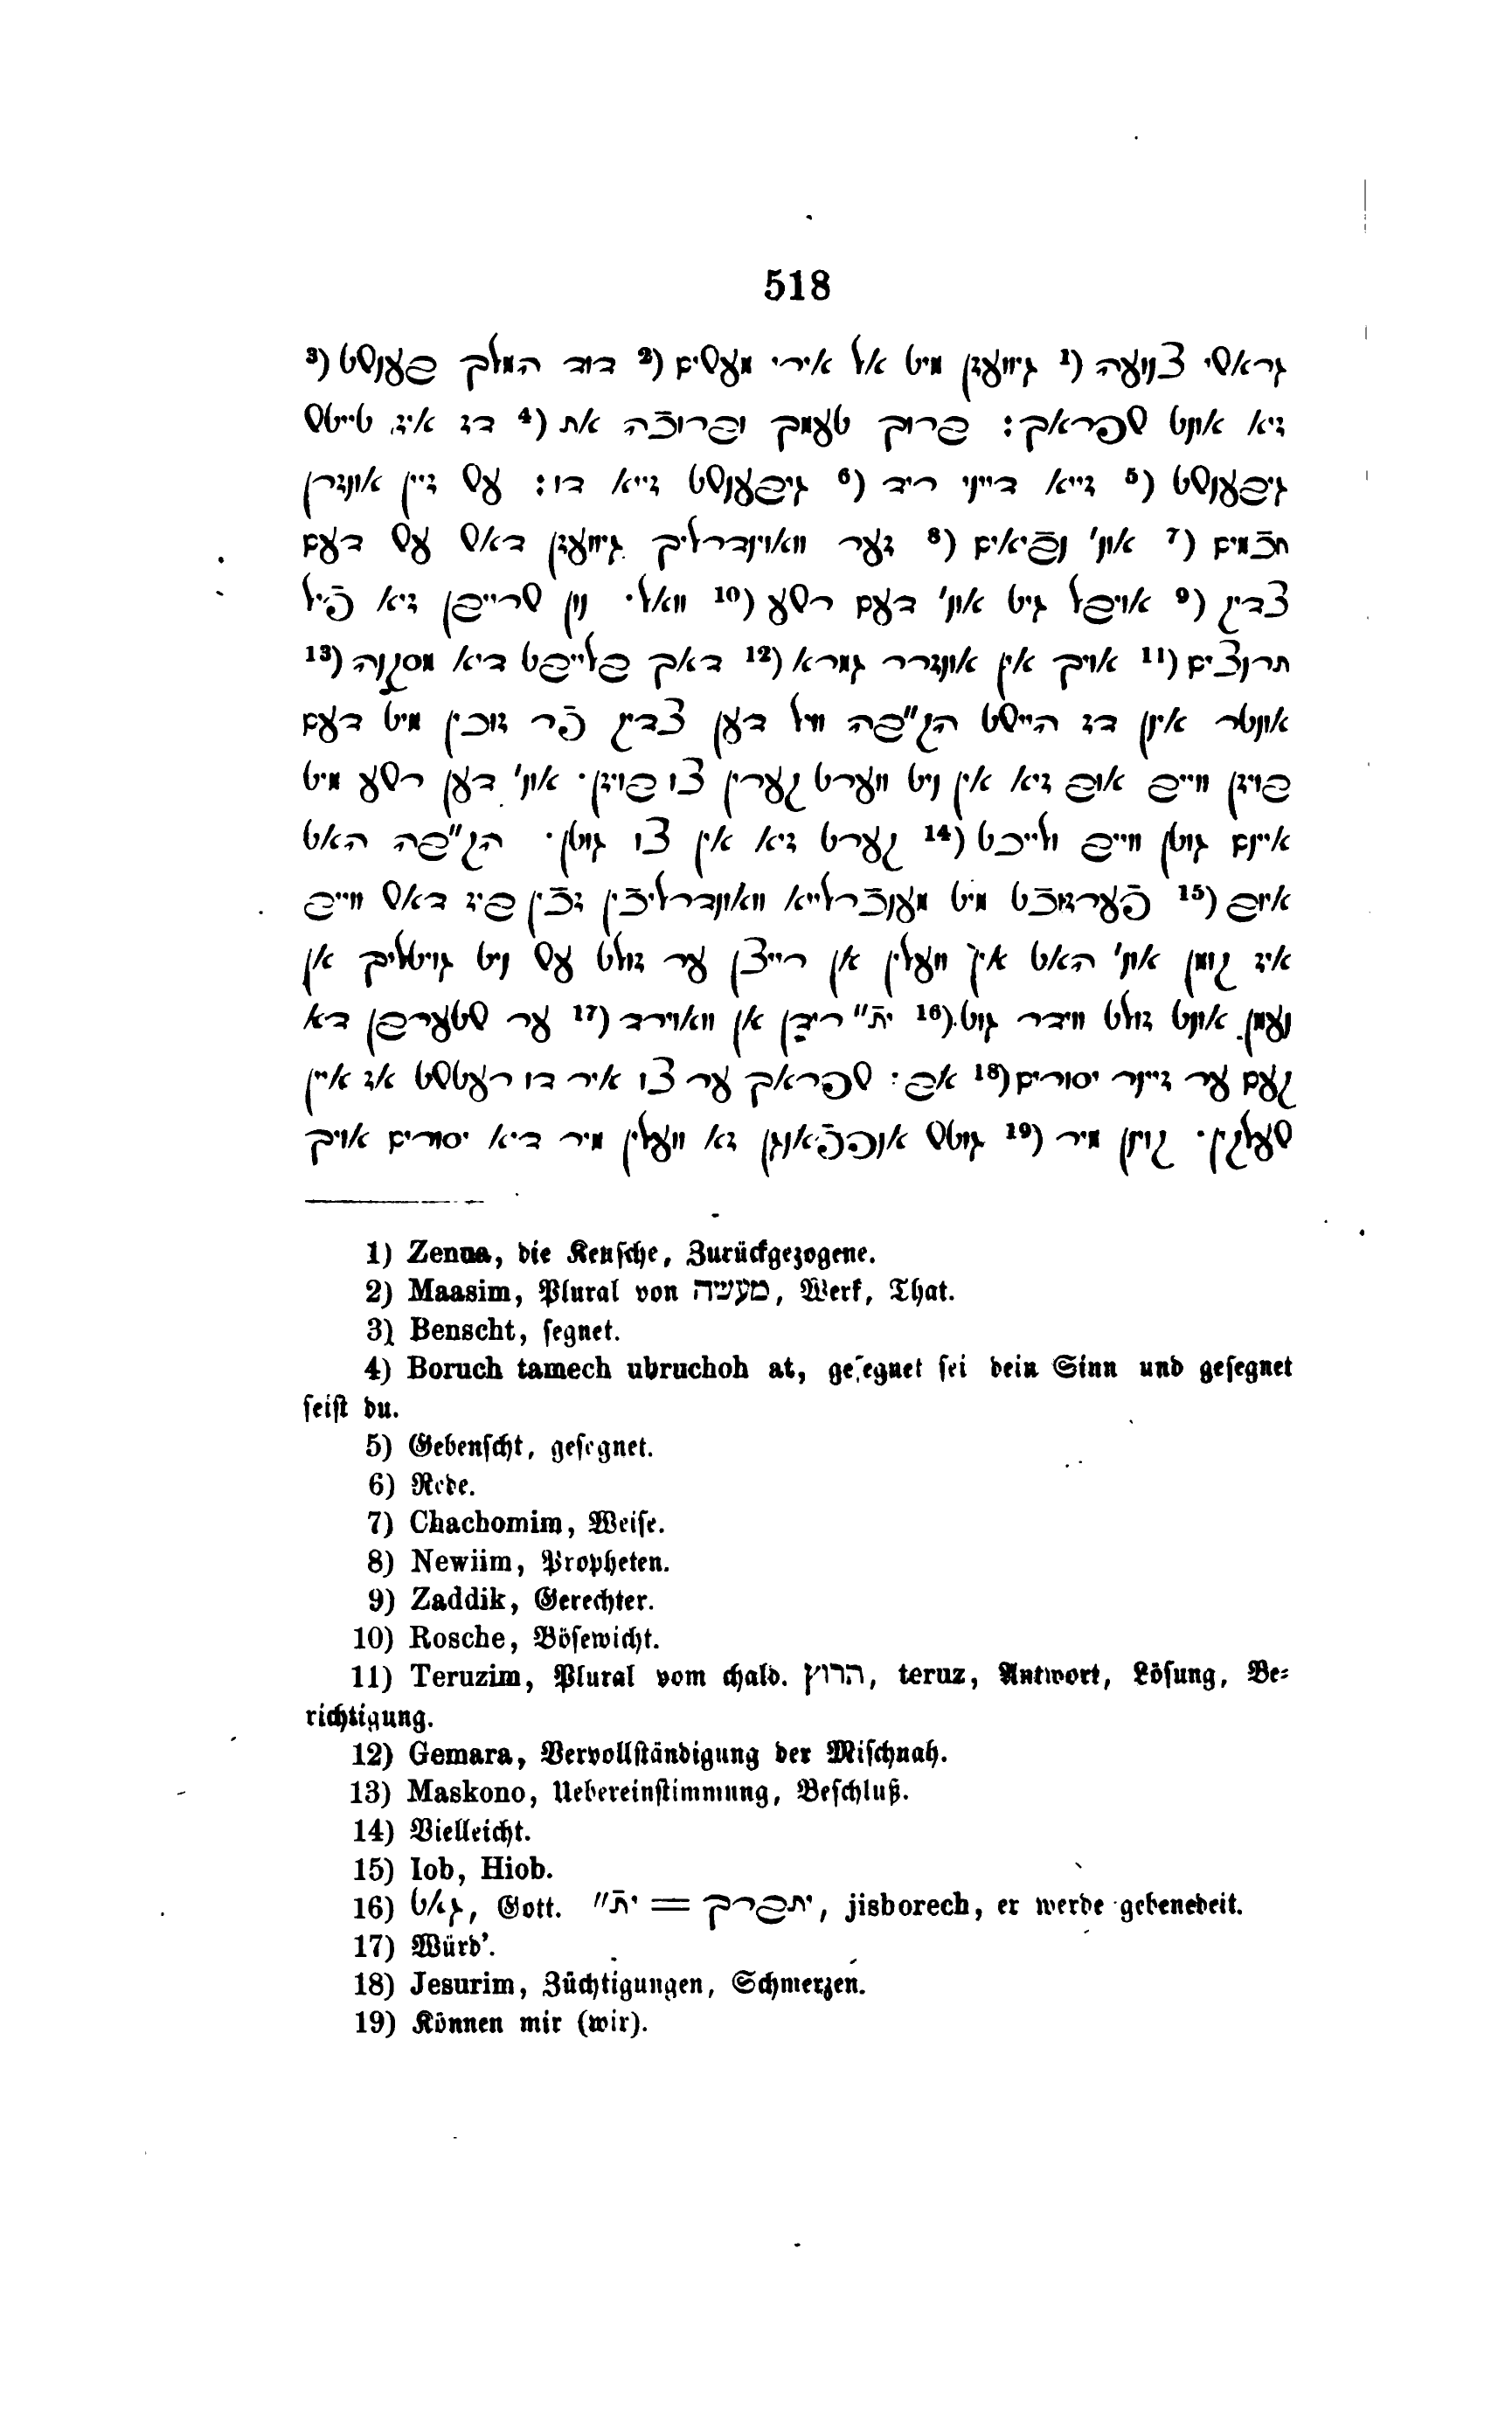 518
גראשי צנועה (1 גיוועזן מיט אל אירי מעשים (2 דוד המלך בענשט (3
זיא אונט שפראך: ברוך טעמך וברוכֿה את (4 דז איז טייטש
גיבענשט (5 זייא דייני ריד (6 גיבענשט זייא דו: עש זיין אונזרן
חכֿמים (7 אונ' נבֿיאים (8 זער וואוינדרליך גיוועזן דאש עש דעם
צדיק (9 אויבל גיט אונ' דעם רשע (10 וואל· נון שרייבן זיא פֿיל
תרוצים (11 אויך אין אונזרר גמרא (12 דאך בלייבט דיא מסקנה (13
אונטר אין דז הייסט הק"בה וויל דען צדיק פֿר זוכין מיט דעם
בויזן ווייב אוב זיא אין ניט ווערט קערין צו בויזן· אונ' דען רשע מיט
איינם גוטן ווייב ולייכט (14 קערט זיא אין צו גוטן· הק"בה האט
איוב (15 פֿערזוכֿט מיט מענכֿרלייא וואונדרליכֿן זכֿין ביז דאש ווייב
איז קומן אונ' האט אין וועלין אן רייצן ער זולט עש ניט גויטליך אן
נעמן אונט זולט ווידר גוט.(16 ית"' רידן אן וואוירד (17 ער שטערבן דא
קעם ער זיינר יסורים(18 אב: שפראך ער צו איר דו רעטשט אז איין
שעלקין· קוינן מיר (19 גוטש אנפפֿאנגן זא וועלין מיר דיא יסורים אויך
1) Zenua, die Keusche, Zurückgezogene.
2) Maasim, Plural von מעשיה, Werk, That.
3) Benscht, segnet.
4) Boruch tamech ubruchoh at, gesegnet sei dein Sinn und gesegnet
seist du.
5) Gebenscht, gesegnet.
6) Rede.
7) Chachomim, Weise.
8) Newiim, Propheten.
9) Zaddik, Gerechter.
10) Rosche, Bösewicht.
11) Teruzim, Plural vom chald. תרוץ, teruz, Antwort, Lösung, Be-
richtigung.
12) Gemara, Vervollständigung der Mischnah.
13) Maskono, Uebereinstimmung, Beschluß.
14) Vielleicht.
15) Iob, Hiob.
16) גאט, Gott. ית"' = יתברך, jisborech, er werde gebenedeit.
17) Würd'.
18) Jesurim, Züchtigungen, Schmerzen.
19) Können mir (wir).